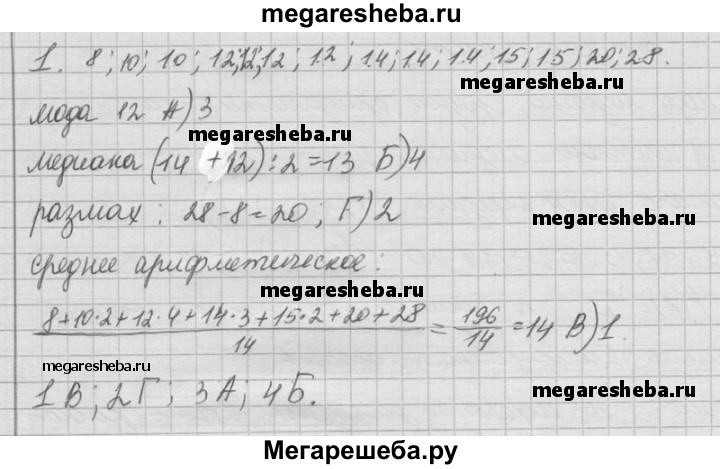 megaresheba.ru
1. 8; 10; 10; 12; 12; 12; 12; 14; 14; 14; 15; 15; 20; 28.
megaresheba.ru
мода 12 А) 3
megaresheba.ru
медиана (14 + 12) : 2 = 13 Б) 4
megaresheba.ru
размах : 28 - 8 = 20 ; Г) 2
megaresheba.ru
среднее арифметическое :
megaresheba.ru
8+10·2+12·4+14·3+15·2+20+28 / 14 = 196/14 = 14 В) 1.
megaresheba.ru
1 В ; 2 Г ; 3 А ; 4 Б.
megaresheba.ru
Мегарешеба.ру